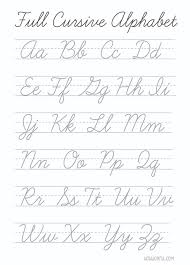 Full Cursive Alphabet
Aa Bb Cc Dd
Ee Ff Gg Hh Ii
Jj Kk Ll Mm
Nn Oo Pp Qq
Rr Ss Tt Uu Vv
Ww Xx Yy Zz